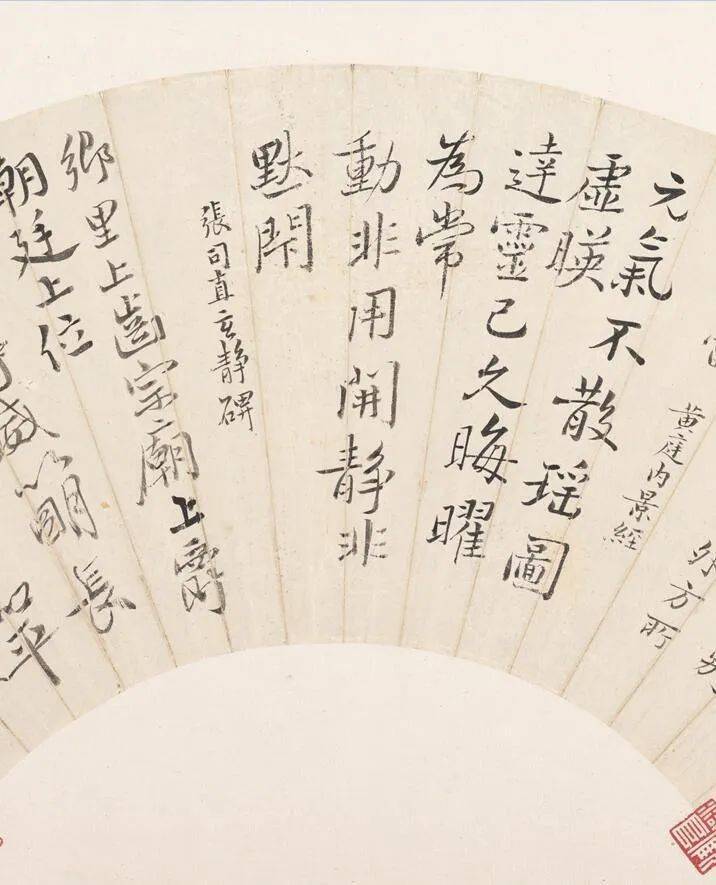 方所
黄庭内景經
元氣不散瑶圖
虛暎
達靈已久晦曜
為常
動非用開靜非
默閇
張司直玄靜碑
鄉里上齒宗廟上爵
朝廷上位
長